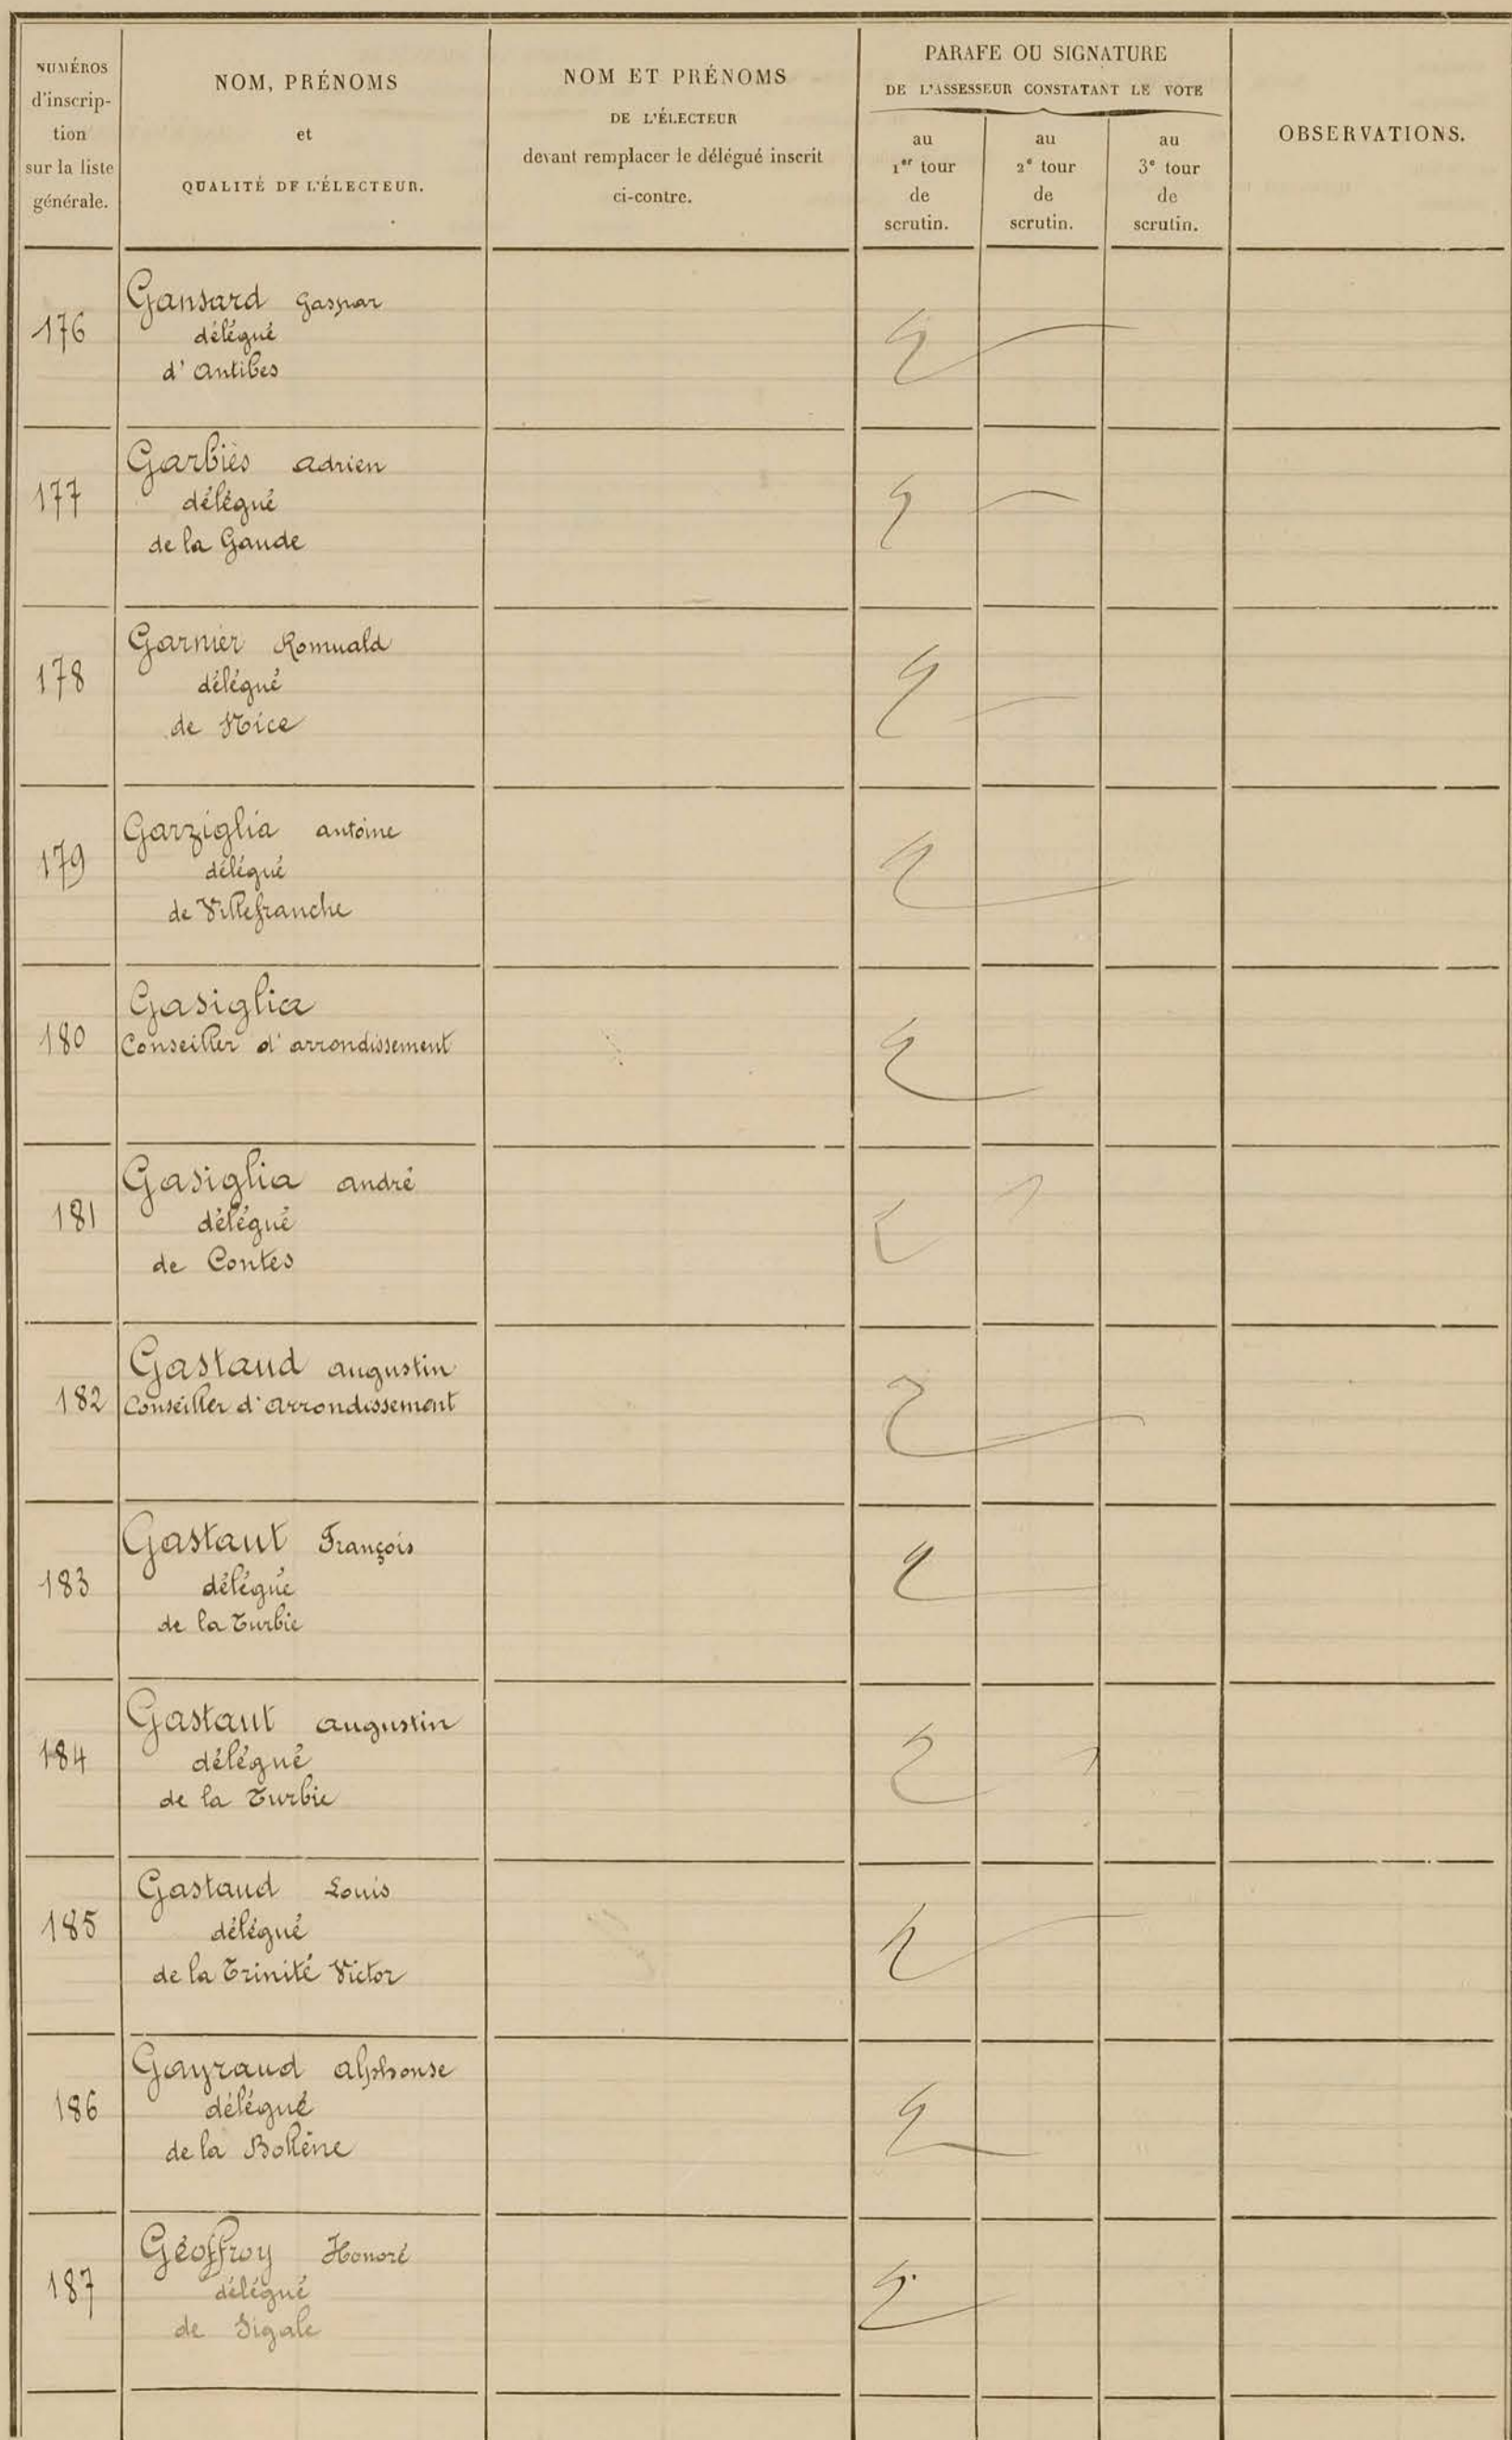 NUMÉROS
d'inscrip-
tion
sur la liste
générale.
NOM, PRÉNOMS
et
QUALITÉ DE L'ÉLECTEUR.
NOM ET PRÉNOMS
DE L'ÉLECTEUR
devant remplacer le délégué inscrit
ci-contre.
PARAFE OU SIGNATURE
DE L'ASSESSEUR CONSTATANT LE VOTE
au
1er tour
de
scrutin.
au
2e tour
de
scrutin.
au
3e tour
de
scrutin.
OBSERVATIONS.
176
Gansard Gaspar
délégué
d'Antibes
177
Garbiès Adrien
délégué
de la Gaude
178
Garnier Romuald
délégué
de Nice
179
Garziglia antoine
délégué
de Villefranche
180
Gasiglia
Conseiller d'arrondissement
181
Gasiglia andré
délégué
de Contes
182
Gastaud augustin
Conseiller d'Arrondissement
183
Gastaut François
délégué
de la Turbie
184
Gastaut augustin
délégué
de la Turbie
185
Gastaud Louis
délégué
de la Trinité Victor
186
Gayraud alphonse
délégué
de la Bollène
187
Géoffroy Honoré
délégué
de Sigale